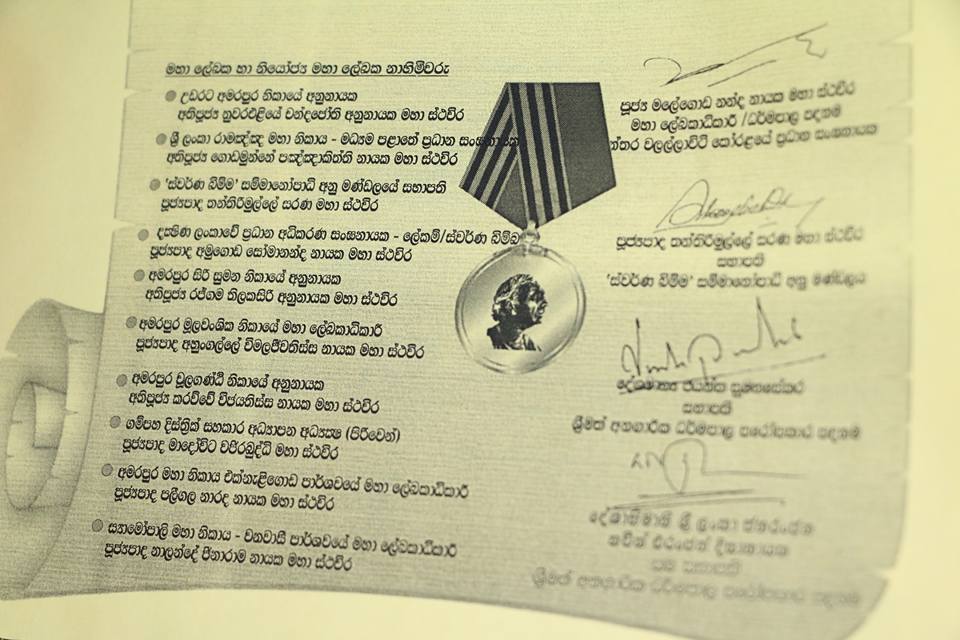 මහා ලේඛක හා නියෝජ්‍ය මහා ලේඛක නාහිමිවරු
උඩරට අමරපුර නිකායේ අනුනායක
අතිපූජ්‍ය නුවරඑළියේ චන්දජෝති අනුනායක මහා ස්ථවිර
ශ්‍රී ලංකා රාමඤ්ඤ මහා නිකාය - මධ්‍යම පළාතේ ප්‍රධාන සංඝනායක
අතිපූජ්‍ය ගොඩමුන්නේ පඤ්ඤාකිත්ති නායක මහා ස්ථවිර
'ස්වර්ණ බිම්ම' සම්මානෝපාධි අනු මණ්ඩලයේ සභාපති
පූජ්‍යපාද තන්තිරිමුල්ලේ සරණ මහා ස්ථවිර
දක්ෂිණ ලංකාවේ ප්‍රධාන අධිකරණ සංඝනායක - ලේකම්/ස්වර්ණ බිම්බ
පූජ්‍යපාද අමුගොඩ සෝමානන්ද නායක මහා ස්ථවිර
අමරපුර සිරි සුමන නිකායේ අනුනායක
අතිපූජ්‍ය රජ්ගම තිලකසිරි අනුනායක මහා ස්ථවිර
අමරපුර මූලවංශික නිකායේ මහා ලේඛකාධිකාරී
පූජ්‍යපාද අහුංගල්ලේ විමලජීවතිස්ස නායක මහා ස්ථවිර
අමරපුර චූලගණ්ඨි නිකායේ අනුනායක
අතිපූජ්‍ය කරව්වේ විජයතිස්ස නායක මහා ස්ථවිර
ගම්පහ දිස්ත්‍රික් සහකාර අධ්‍යාපන අධ්‍යක්ෂ (පිරිවෙන්)
පූජ්‍යපාද මාදෝවිට වජිරබුද්ධි මහා ස්ථවිර
අමරපුර මහා නිකාය එක්නැළිගොඩ පාර්ශවයේ මහා ලේඛකාධිකාරී
පූජ්‍යපාද පලීගල නාරද නායක මහා ස්ථවිර
ස්‍යාමෝපාලි මහා නිකාය - වනවාසී පාර්ශවයේ මහා ලේඛකාධිකාරී
පූජ්‍යපාද නාලන්දේ පීනාරාම නායක මහා ස්ථවිර
පූජ්‍ය මලේගොඩ නන්ද නායක මහා ස්ථවිර
මහා ලේඛකාධිකාරී/ධර්මපාල පදනම
වලල්ලාවිටි කෝරළයේ ප්‍රධාන සංඝනායක
පූජ්‍යපාද තන්තිරිමුල්ලේ සරණ මහා ස්ථවිර
සභාපති
'ස්වර්ණ බිම්ම' සම්මානෝපාධි අනු මණ්ඩලය
දේශභාෂ්‍ය
සභාපති
ශ්‍රීමත් අනගාරික ධර්මපාල පරෝපකාර පදනම
දේශාභිමානී ශ්‍රී ලංකා
සභාපති
ශ්‍රීමත් අනගාරික ධර්මපාල පරෝපකාර පදනම